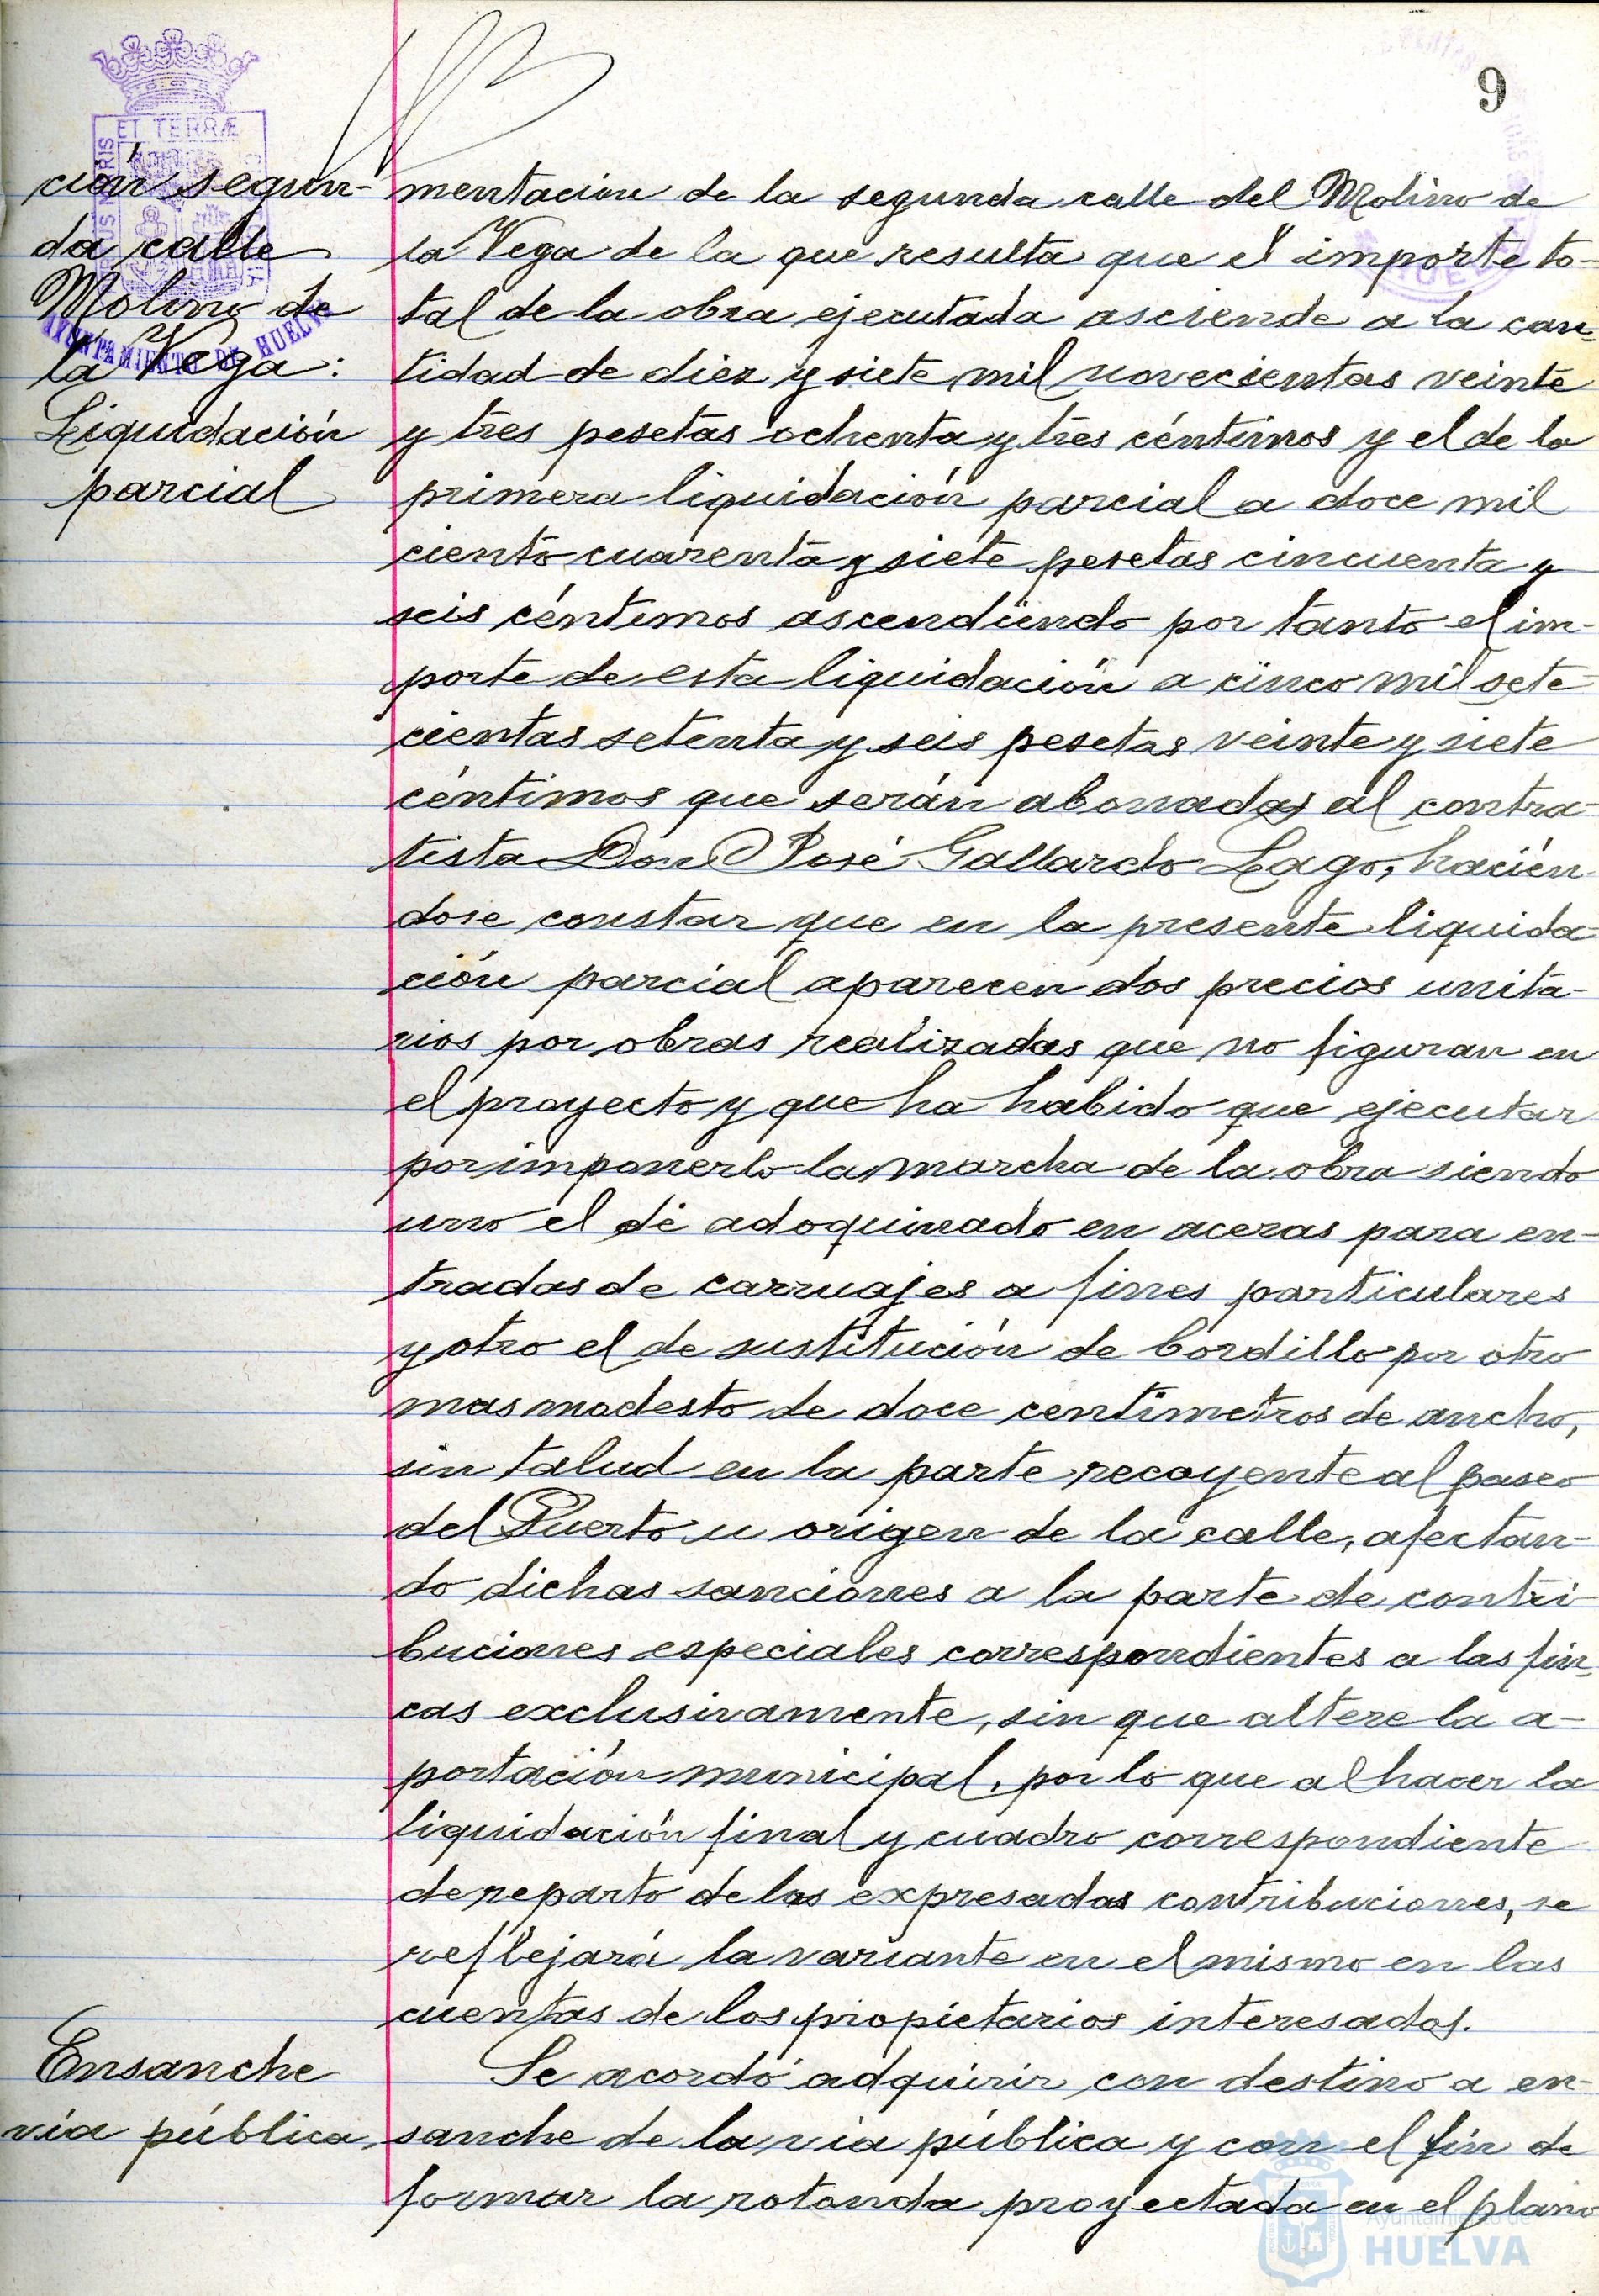 9
ET TERRÆ
AYUNTAMIENTO DE HUELVA
ción segun-
da calle
Molino de
la Vega:
Liquidación
parcial
mentación de la segunda calle del Molino de
la Vega de la que resulta que el importe to-
tal de la obra ejecutada asciende a la can-
tidad de diez y siete mil novecientas veinte
y tres pesetas ochenta y tres céntimos y el de la
primera liquidación parcial a doce mil
ciento cuarenta y siete pesetas cincuenta y
seis céntimos ascendiendo por tanto el im-
porte de esta liquidación a cinco mil sete-
cientas setenta y seis pesetas veinte y siete
céntimos que serán abonadas al contra-
tista Don José Gallardo Lago, hacién-
dose constar que en la presente liquida-
ción parcial aparecen dos precios unita-
rios por obras realizadas que no figuran en
el proyecto y que ha habido que ejecutar
por imponerlo la marcha de la obra siendo
uno el de adoquinado en aceras para en-
tradas de carruajes a fines particulares
y otro el de sustitución de bordillo por otro
mas modesto de doce centímetros de ancho,
sin talud en la parte recayente al paseo
del Puerto u origen de la calle, afectan-
do dichas sanciones a la parte de contri-
buciones especiales correspondientes a las fin-
cas exclusivamente, sin que altere la a-
portación municipal, por lo que al hacer la
liquidación final y cuadro correspondiente
de reparto de las expresadas contribuciones, se
reflejará la variante en el mismo en las
cuentas de los propietarios interesados.
Ensanche
vía pública
Se acordó adquirir con destino a en-
sanche de la vía pública y con el fin de
formar la rotonda proyectada en el plano
Ayuntamiento de
HUELVA